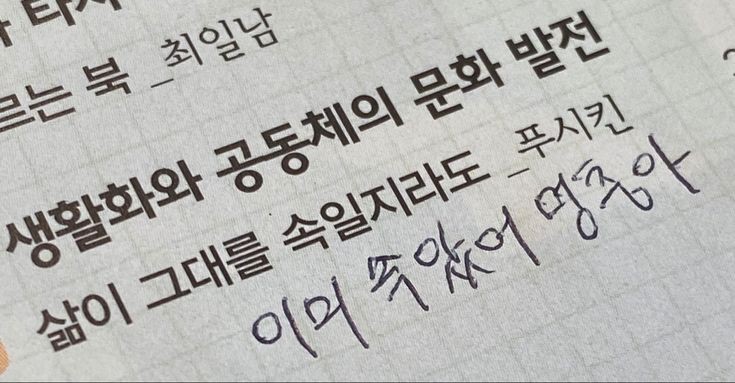 르는 북 _최일남
생활화와 공동체의 문화 발전
삶이 그대를 속일지라도 _푸시킨
이미 속았어 멍충아